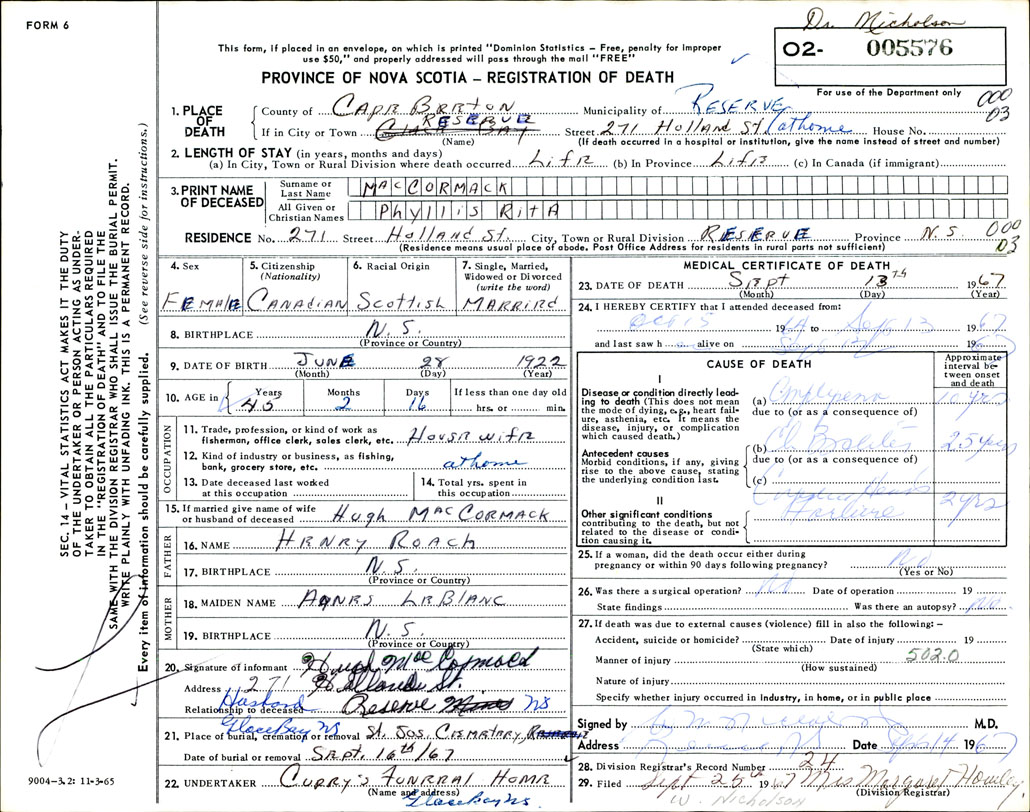 FORM 6
Dr. Nicholson
This form, if placed in an envelope, on which is printed "Dominion Statistics – Free, penalty for improper
use $50," and properly addressed will pass through the mail "FREE"
02- 005576
PROVINCE OF NOVA SCOTIA – REGISTRATION OF DEATH
For use of the Department only
000
03
1. PLACE OF DEATH
County of CAPE BRETON Municipality of RESERVE
If in City or Town RESERVE Street 271 Holland St. (at home House No.
(Name) (If death occurred in a hospital or institution, give the name instead of street and number)
2. LENGTH OF STAY (in years, months and days)
(a) In City, Town or Rural Division where death occurred LIFE (b) In Province LIFE (c) In Canada (if immigrant)
3. PRINT NAME OF DECEASED
Surname or Last Name MACCORMACK
All Given or Christian Names PHYLLIS RITA
RESIDENCE No. 271 Street Holland St. City, Town or Rural Division RESERVE Province N.S.
000
03
(Residence means usual place of abode. Post Office Address for residents in rural parts not sufficient)
4. Sex FEMALE
5. Citizenship (Nationality) CANADIAN
6. Racial Origin Scottish
7. Single, Married, Widowed or Divorced (write the word) MARRIED
8. BIRTHPLACE N.S.
(Province or Country)
9. DATE OF BIRTH JUNE 28 1922
(Month) (Day) (Year)
10. AGE in Years 45 Months 2 Days 16 If less than one day old hrs. or min.
OCCUPATION
11. Trade, profession, or kind of work as fisherman, office clerk, sales clerk, etc. Housewife
12. Kind of industry or business, as fishing, bank, grocery store, etc. at home
13. Date deceased last worked at this occupation
14. Total yrs. spent in this occupation
15. If married give name of wife or husband of deceased Hugh MacCormack
FATHER
16. NAME HENRY ROACH
17. BIRTHPLACE N.S.
(Province or Country)
MOTHER
18. MAIDEN NAME AGNES LEBLANC
19. BIRTHPLACE N.S.
(Province or Country)
20. Signature of informant Hugh MacCormack
Address 271 Holland St.
Relationship to deceased Husband Reserve Mines NS
Glace Bay NS
21. Place of burial, cremation or removal St. Jos. Cemetary,
Date of burial or removal SEPT. 16th/67
22. UNDERTAKER CURRY'S FUNERAL HOME
(Name and address) Glace Bay NS.
MEDICAL CERTIFICATE OF DEATH
23. DATE OF DEATH Sept 13th 1967
(Month) (Day) (Year)
24. I HEREBY CERTIFY that I attended deceased from:
19 to Sept 13 1967
and last saw h alive on Sept 13 1967
CAUSE OF DEATH
Approximate interval between onset and death
I
Disease or condition directly leading to death (This does not mean the mode of dying, e.g., heart failure, asthenia, etc. It means the disease, injury, or complication which caused death.)
(a) 10 yrs
due to (or as a consequence of)
Antecedent causes
Morbid conditions, if any, giving rise to the above cause, stating the underlying condition last.
(b) 25 yrs
due to (or as a consequence of)
(c)
II
Other significant conditions contributing to the death, but not related to the disease or condition causing it.
2 yrs
25. If a woman, did the death occur either during pregnancy or within 90 days following pregnancy? No
(Yes or No)
26. Was there a surgical operation? No Date of operation 19
State findings Was there an autopsy? No
27. If death was due to external causes (violence) fill in also the following:–
Accident, suicide or homicide? Date of injury 19
(State which)
Manner of injury 502.0
(How sustained)
Nature of injury
Specify whether injury occurred in Industry, in home, or in public place
Signed by M.D.
Address Date Sept 14 1967
28. Division Registrar's Record Number 24
29. Filed Sept 25th 1967 Mrs Margaret
(Division Registrar)
W. Nicholson
SEC. 14 – VITAL STATISTICS ACT MAKES IT THE DUTY
OF THE UNDERTAKER OR PERSON ACTING AS UNDER-
TAKER TO OBTAIN ALL THE PARTICULARS REQUIRED
IN THE "REGISTRATION OF DEATH" AND TO FILE THE
SAME WITH THE DIVISION REGISTRAR WHO SHALL ISSUE THE BURIAL PERMIT.
WRITE PLAINLY WITH UNFADING INK. THIS IS A PERMANENT RECORD.
Every item of information should be carefully supplied. (See reverse side for instructions.)
9004-3.2: 11-3-65